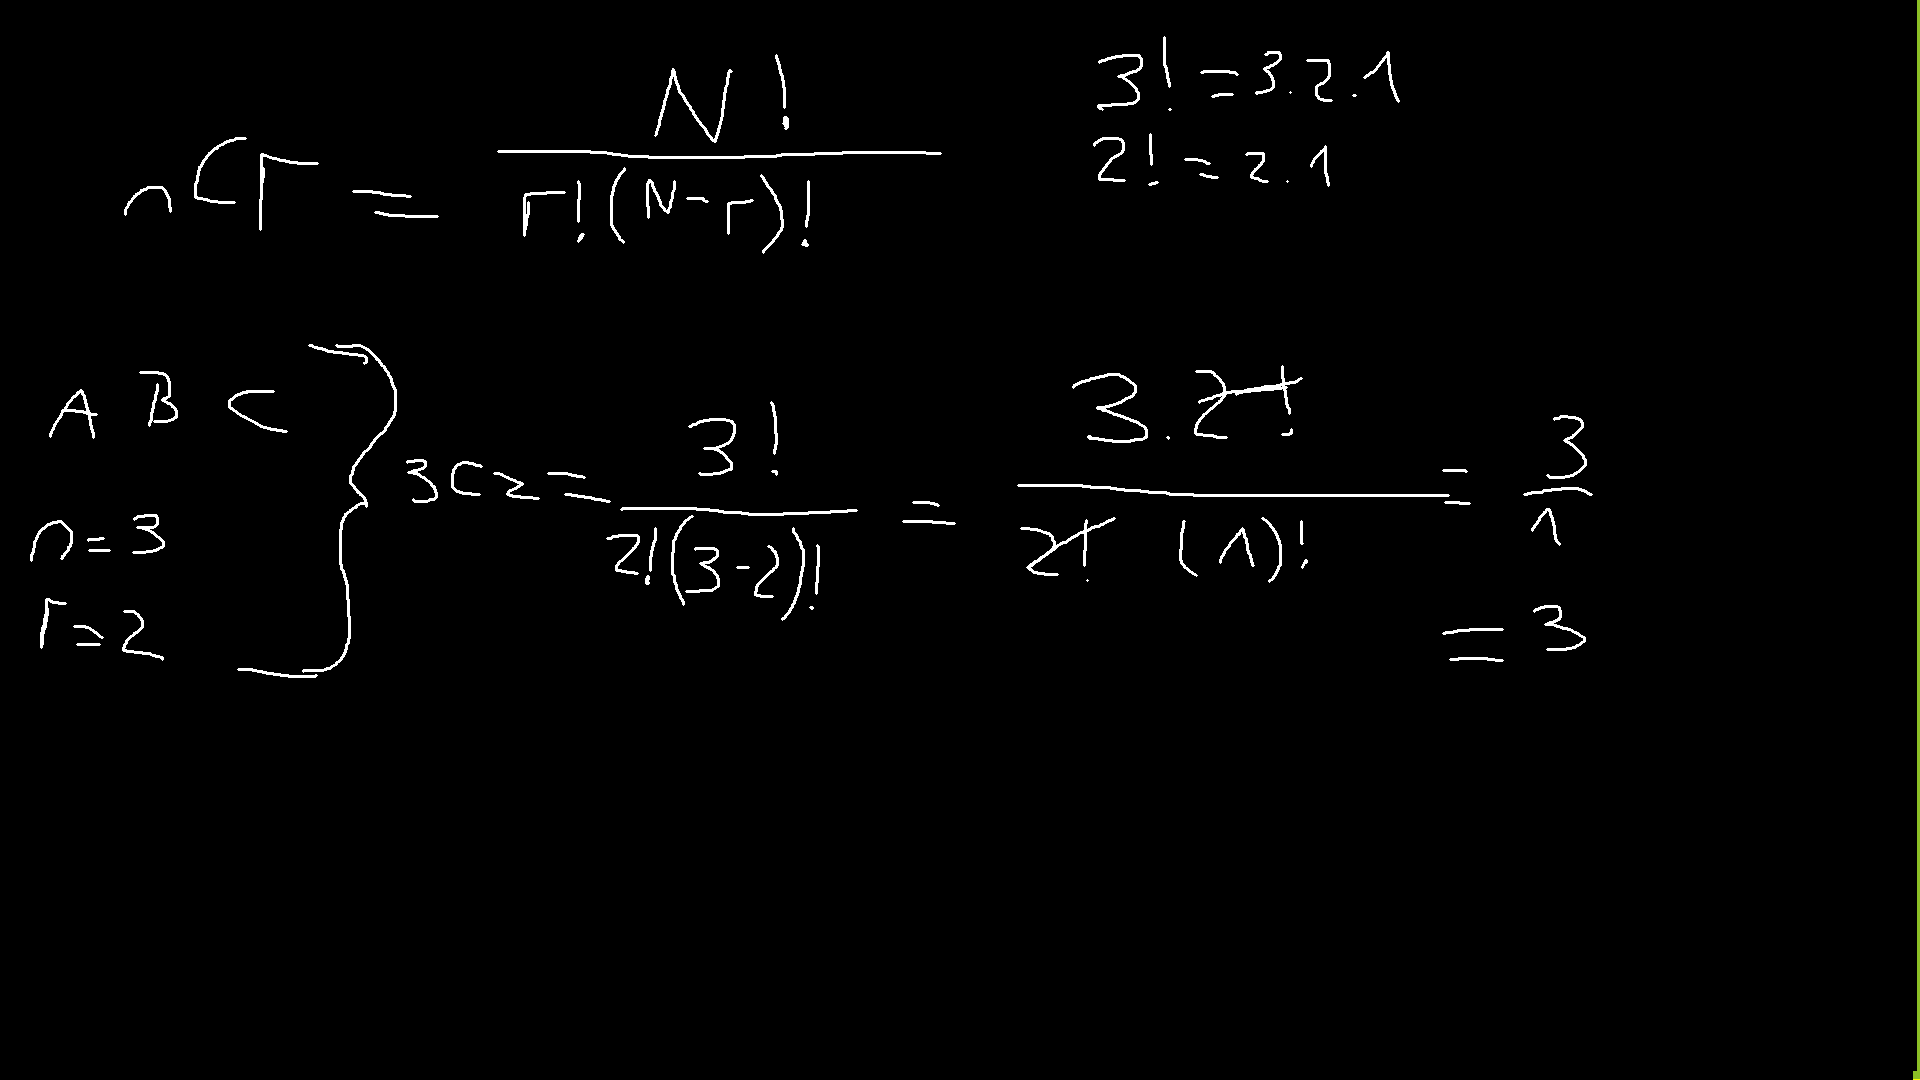 nCr = N! / r!(N-r)!
3! = 3.2.1
2! = 2.1
A B C
n=3
r=2
3C2 = 3! / 2!(3-2)! = 3.2! / 2! (1)! = 3 / 1
= 3